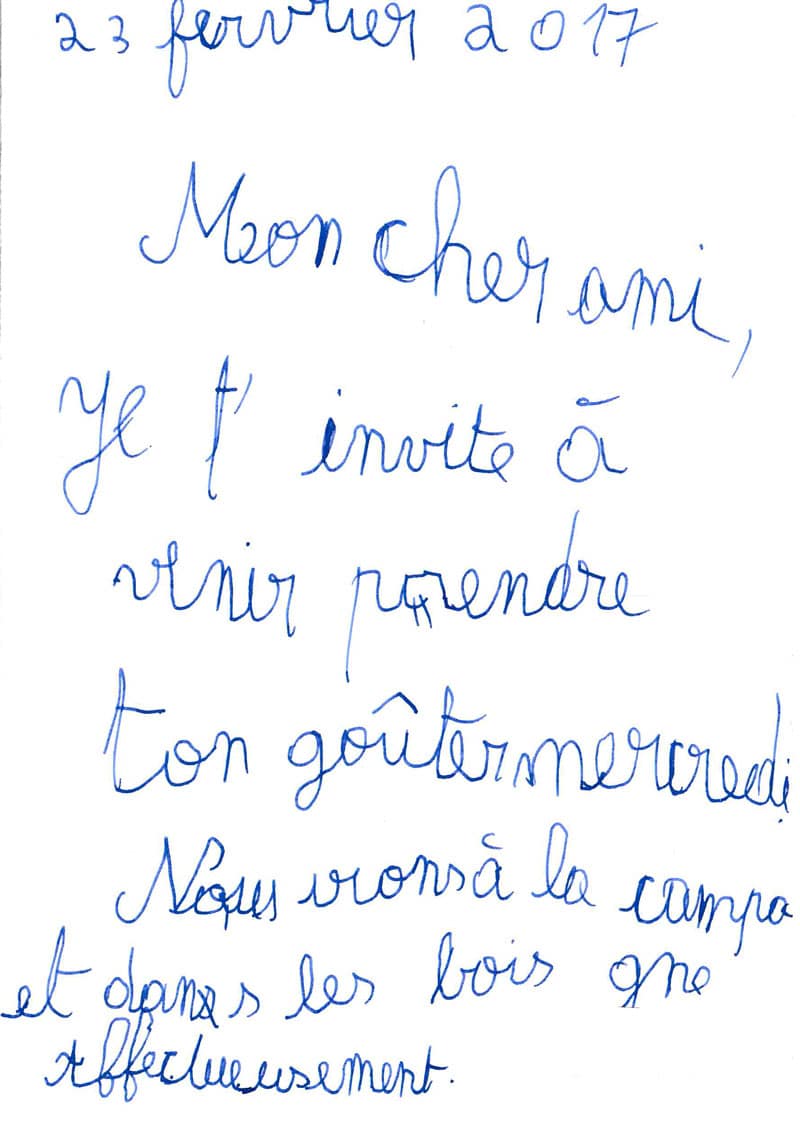 23 fevrier 2017
Mon cher ami,
Je t'invite à
venir prendre
ton goûter mercredi
Nous irons à la campa
et dans les bois gne
Affectueusement.